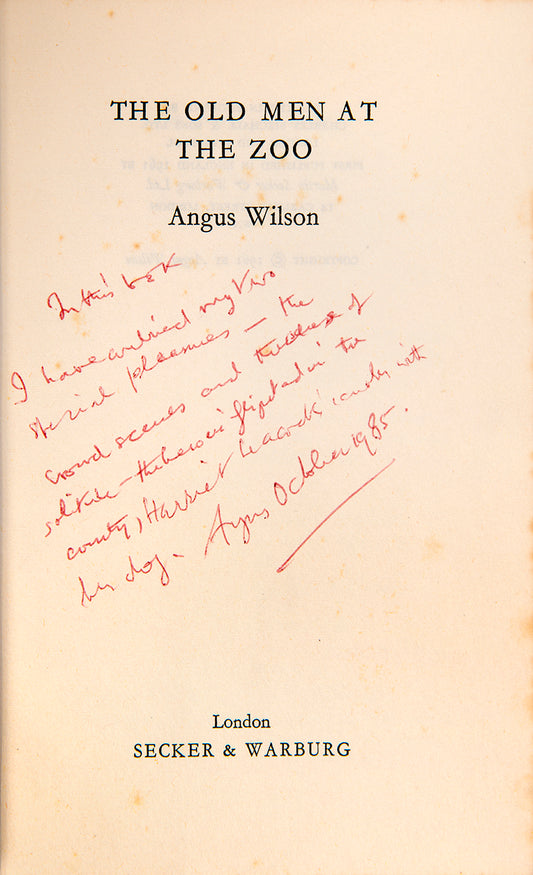 THE OLD MEN AT
THE ZOO
Angus Wilson
In this book
I have combined my two
special pleasures — the
crowd scenes and those of
solitude — the hero in the
county, Harriet Leacock's with
her dog. Angus October 1985.
London
SECKER & WARBURG